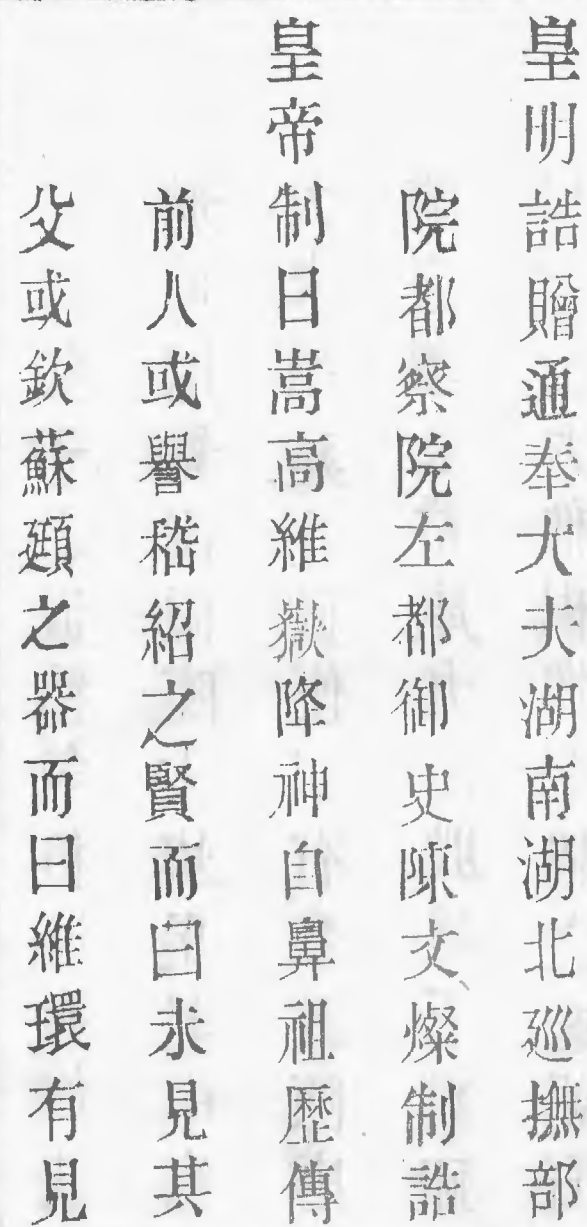 皇明誥贈通奉大夫湖南湖北巡撫部
院都察院左都御史陳文燦制誥
皇帝制曰嵩高維嶽降神自鼻祖歷傳
前人或譽嵇紹之賢而曰未見其
父或欽蘇頲之器而曰維環有見